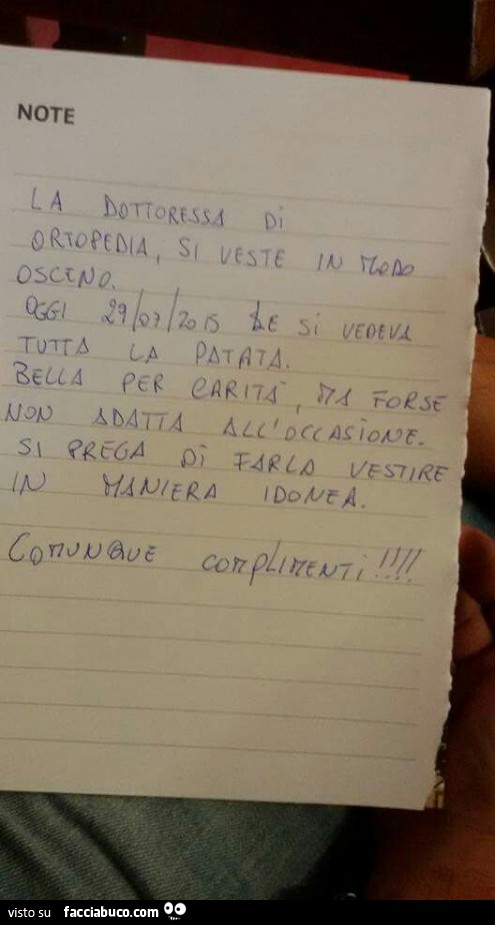 NOTE
LA DOTTORESSA DI
ORTOPEDIA, SI VESTE IN MODO
OSCENO.
OGGI 29/07/2015 LE SI VEDEVA
TUTTA LA PATATA.
BELLA PER CARITÀ, MA FORSE
NON ADATTA ALL'OCCASIONE.
SI PREGA DI FARLA VESTIRE
IN MANIERA IDONEA.
COMUNQUE COMPLIMENTI!!!!
visto su facciabuco.com